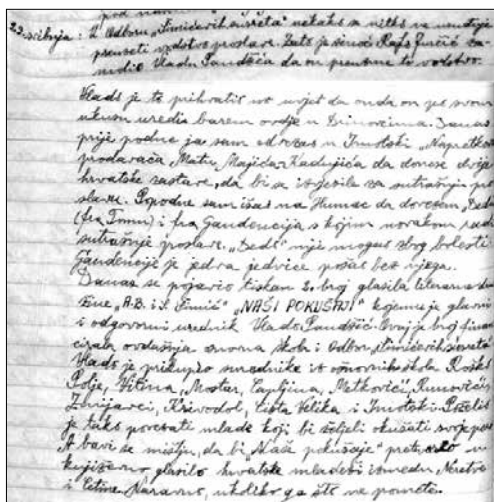 pod na
23. svibnja: U Odboru „Šimićevih susreta" nekako se nitko ne usuđuje
preuzeti vodstvo proslave. Zato je sinoć Rafo Jurčić za-
molio Vladu Pandžića da on preuzme to vodstvo.
Vlado je to prihvatio uz uvjet da onda on po svom
ukusu uredi barem ovdje u Drinovcima. Danas
prije podne ja sam odvezao u Imotski „Napretkova"
prodavača Matu Majića-Kadujića da donese dvije
hrvatske zastave, da bi se izvjesile za sutrašnju pro-
slavu. Popodne sam išao na Humac da dovezem „Dedu"
(fra Tomu) i fra Gaudencija s kojim novakom radi
sutrašnje proslave. „Dedo" nije mogao zbog bolesti
Gaudencije je jedva jedvice pošao bez njega.
Danas se pojavio tiskan 2. broj glasila literarne dru-
žine „A.B. i S. Šimić" „NAŠI POKUŠAJI" kojemu je glavni
i odgovorni urednik Vlado Pandžić. Ovaj je broj finan-
cirala ovdašnja osnovna škola i Odbor „Šimićevih susreta"
Vlado je prikupio suradnike iz osnovnih škola Roško
Polje, Vitina, Mostar, Čapljina, Metković, Runovići,
Zmijavci, Krivodol, Čista Velika i Imotski. Poželio
je tako povezati mlade koji bi željeli okušati svoje pero
A bavi se mišlju, da bi „Naše pokušaje" pretvorio u
književno glasilo hrvatske mladeži između Neretve
i Cetine. Naravno, ukoliko ga što ne pomete.